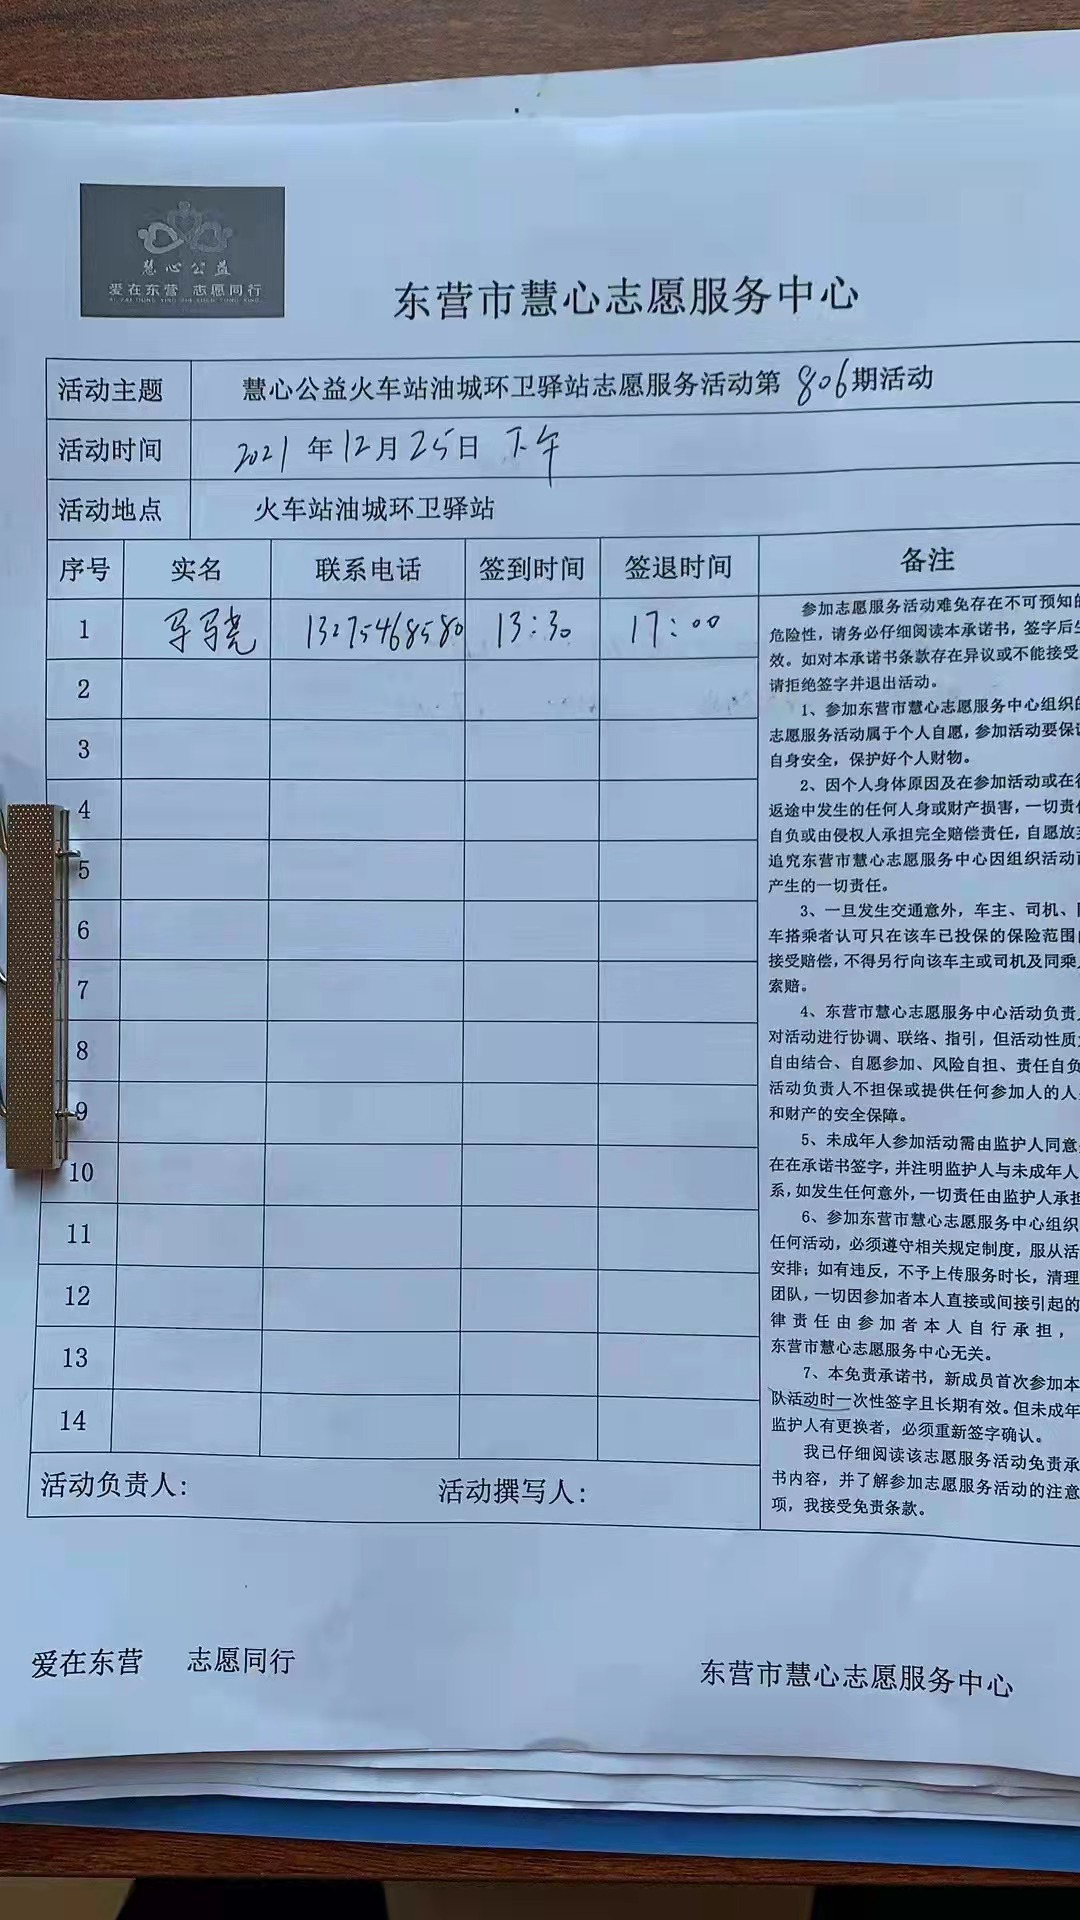 慧心公益
爱在东营 志愿同行
东营市慧心志愿服务中心
活动主题 慧心公益火车站油城环卫驿站志愿服务活动第806期活动
活动时间 2021年12月25日 下午
活动地点 火车站油城环卫驿站
序号 实名 联系电话 签到时间 签退时间 备注
1 13275468580 13:30 17:00
2
3
4
5
6
7
8
9
10
11
12
13
14
参加志愿服务活动难免存在不可预知的
危险性，请务必仔细阅读本承诺书，签字后生
效。如对本承诺书条款存在异议或不能接受
请拒绝签字并退出活动。
1、参加东营市慧心志愿服务中心组织的
志愿服务活动属于个人自愿，参加活动要保证
自身安全，保护好个人财物。
2、因个人身体原因及在参加活动或在往
返途中发生的任何人身或财产损害，一切责任
自负或由侵权人承担完全赔偿责任，自愿放弃
追究东营市慧心志愿服务中心因组织活动而
产生的一切责任。
3、一旦发生交通意外，车主、司机、
车搭乘者认可只在该车已投保的保险范围内
接受赔偿，不得另行向该车主或司机及同乘人
索赔。
4、东营市慧心志愿服务中心活动负责人
对活动进行协调、联络、指引，但活动性质为
自由结合、自愿参加、风险自担、责任自负
活动负责人不担保或提供任何参加人的人身
和财产的安全保障。
5、未成年人参加活动需由监护人同意
在在承诺书签字，并注明监护人与未成年人
系，如发生任何意外，一切责任由监护人承担
6、参加东营市慧心志愿服务中心组织
任何活动，必须遵守相关规定制度，服从活
安排；如有违反，不予上传服务时长，清理
团队，一切因参加者本人直接或间接引起的
律责任由参加者本人自行承担，
东营市慧心志愿服务中心无关。
7、本免责承诺书，新成员首次参加本
队活动时一次性签字且长期有效。但未成年
监护人有更换者，必须重新签字确认。
我已仔细阅读该志愿服务活动免责承
书内容，并了解参加志愿服务活动的注意
项，我接受免责条款。
活动负责人： 活动撰写人：
爱在东营 志愿同行
东营市慧心志愿服务中心